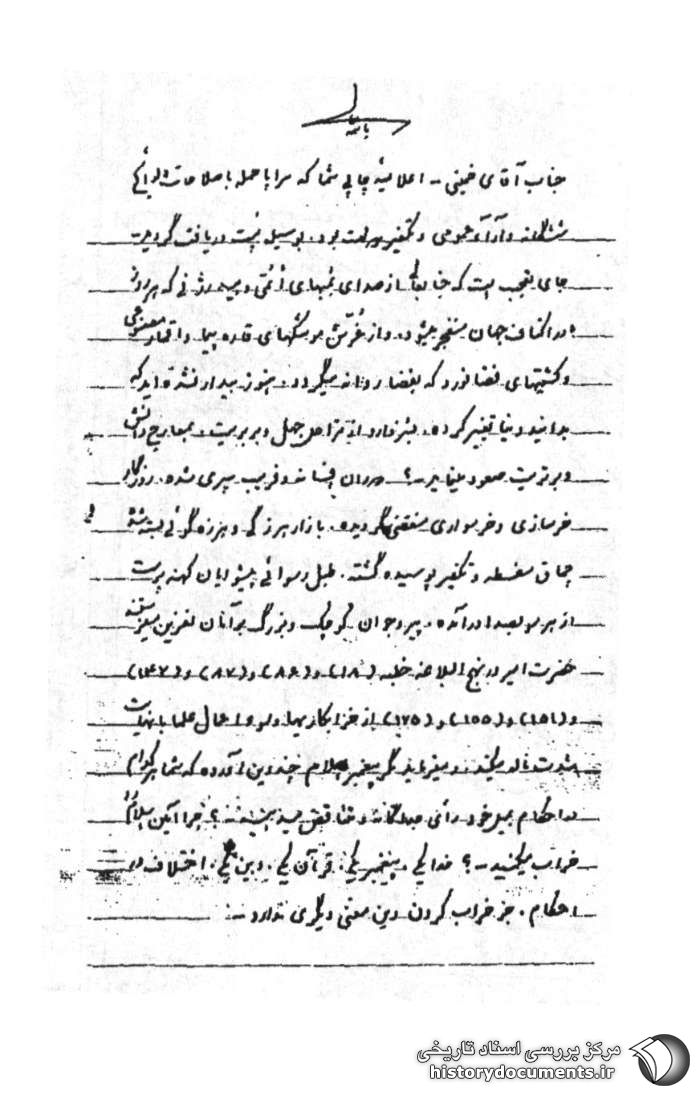 باسمه تعالی
جناب آقای خمینی - اعلامیه چاپی شما که سراپا حمله باصلاحات
ششگانه و آراء عمومی و تکفیر ملت بود، بوسیله پست دریافت گردید.
جای تعجب است که جنابعالی از صدای بمبهای اتمی و هیدرژنی که هر روز
در اکناف جهان منفجر میشود، و از غرش موشکهای قاره پیما و اقمار مصنوعی
و کشتیهای فضانورد که بفضا روانه میگردد، هنوز بیدار نشده اید که
بدانید دنیا تغییر کرده، بشر دارد از مراحل جهل و بربریت، بمعارج دانش
و برتریت صعود مینماید؟ دوران افسانه و فریب سپری شده، روزگار
خرسازی و خرسواری منقضی گردیده، بازار هرزگی و هرزه گوئی بسته شده
چماق سفسطه و تکفیر پوسیده گشته. طبل رسوائی پیشوایان کهنه پرست
از هر سو بصدا درآمده، پیر و جوان کوچک و بزرگ بر آنان نفرین میفرستند
حضرت امیر در نهج البلاغه خطبه (۱۸) و (۸۶) و (۸۷) و (۱۴۷)
و (۱۵۱) و (۱۵۵) و (۱۷۵) از خرابکاریها و سوء اعمال علما بانهایت
شدت ناله میکند، و میفرماید مگر پیغمبر اسلام چند دین آورده که شما هر کدام
در احکام بمیل خود رائی جداگانه و متناقض میدهید؟ چرا آئین اسلام را
خراب میکنید؟ خدا یکی، پیغمبر یکی، قرآن یکی، دین یکی، اختلاف در
احکام، جز خراب کردن دین معنی دیگری ندارد
مرکز بررسی اسناد تاریخی
historydocuments.ir